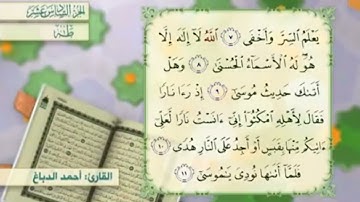 الجزء السادس عشر
طه
يَعْلَمُ السِّرَّ وَأَخْفَى ٧ اللَّهُ لَا إِلَهَ إِلَّا
هُوَ لَهُ الْأَسْمَاءُ الْحُسْنَى ٨ وَهَلْ
أَتَاكَ حَدِيثُ مُوسَى ٩ إِذْ رَءَا نَارًا
فَقَالَ لِأَهْلِهِ امْكُثُوا إِنِّي ءَانَسْتُ نَارًا لَعَلِّي
ءَاتِيكُم مِّنْهَا بِقَبَسٍ أَوْ أَجِدُ عَلَى النَّارِ هُدًى ١٠
فَلَمَّا أَتَاهَا نُودِيَ يَامُوسَى ١١
القارئ: أحمد الدباغ